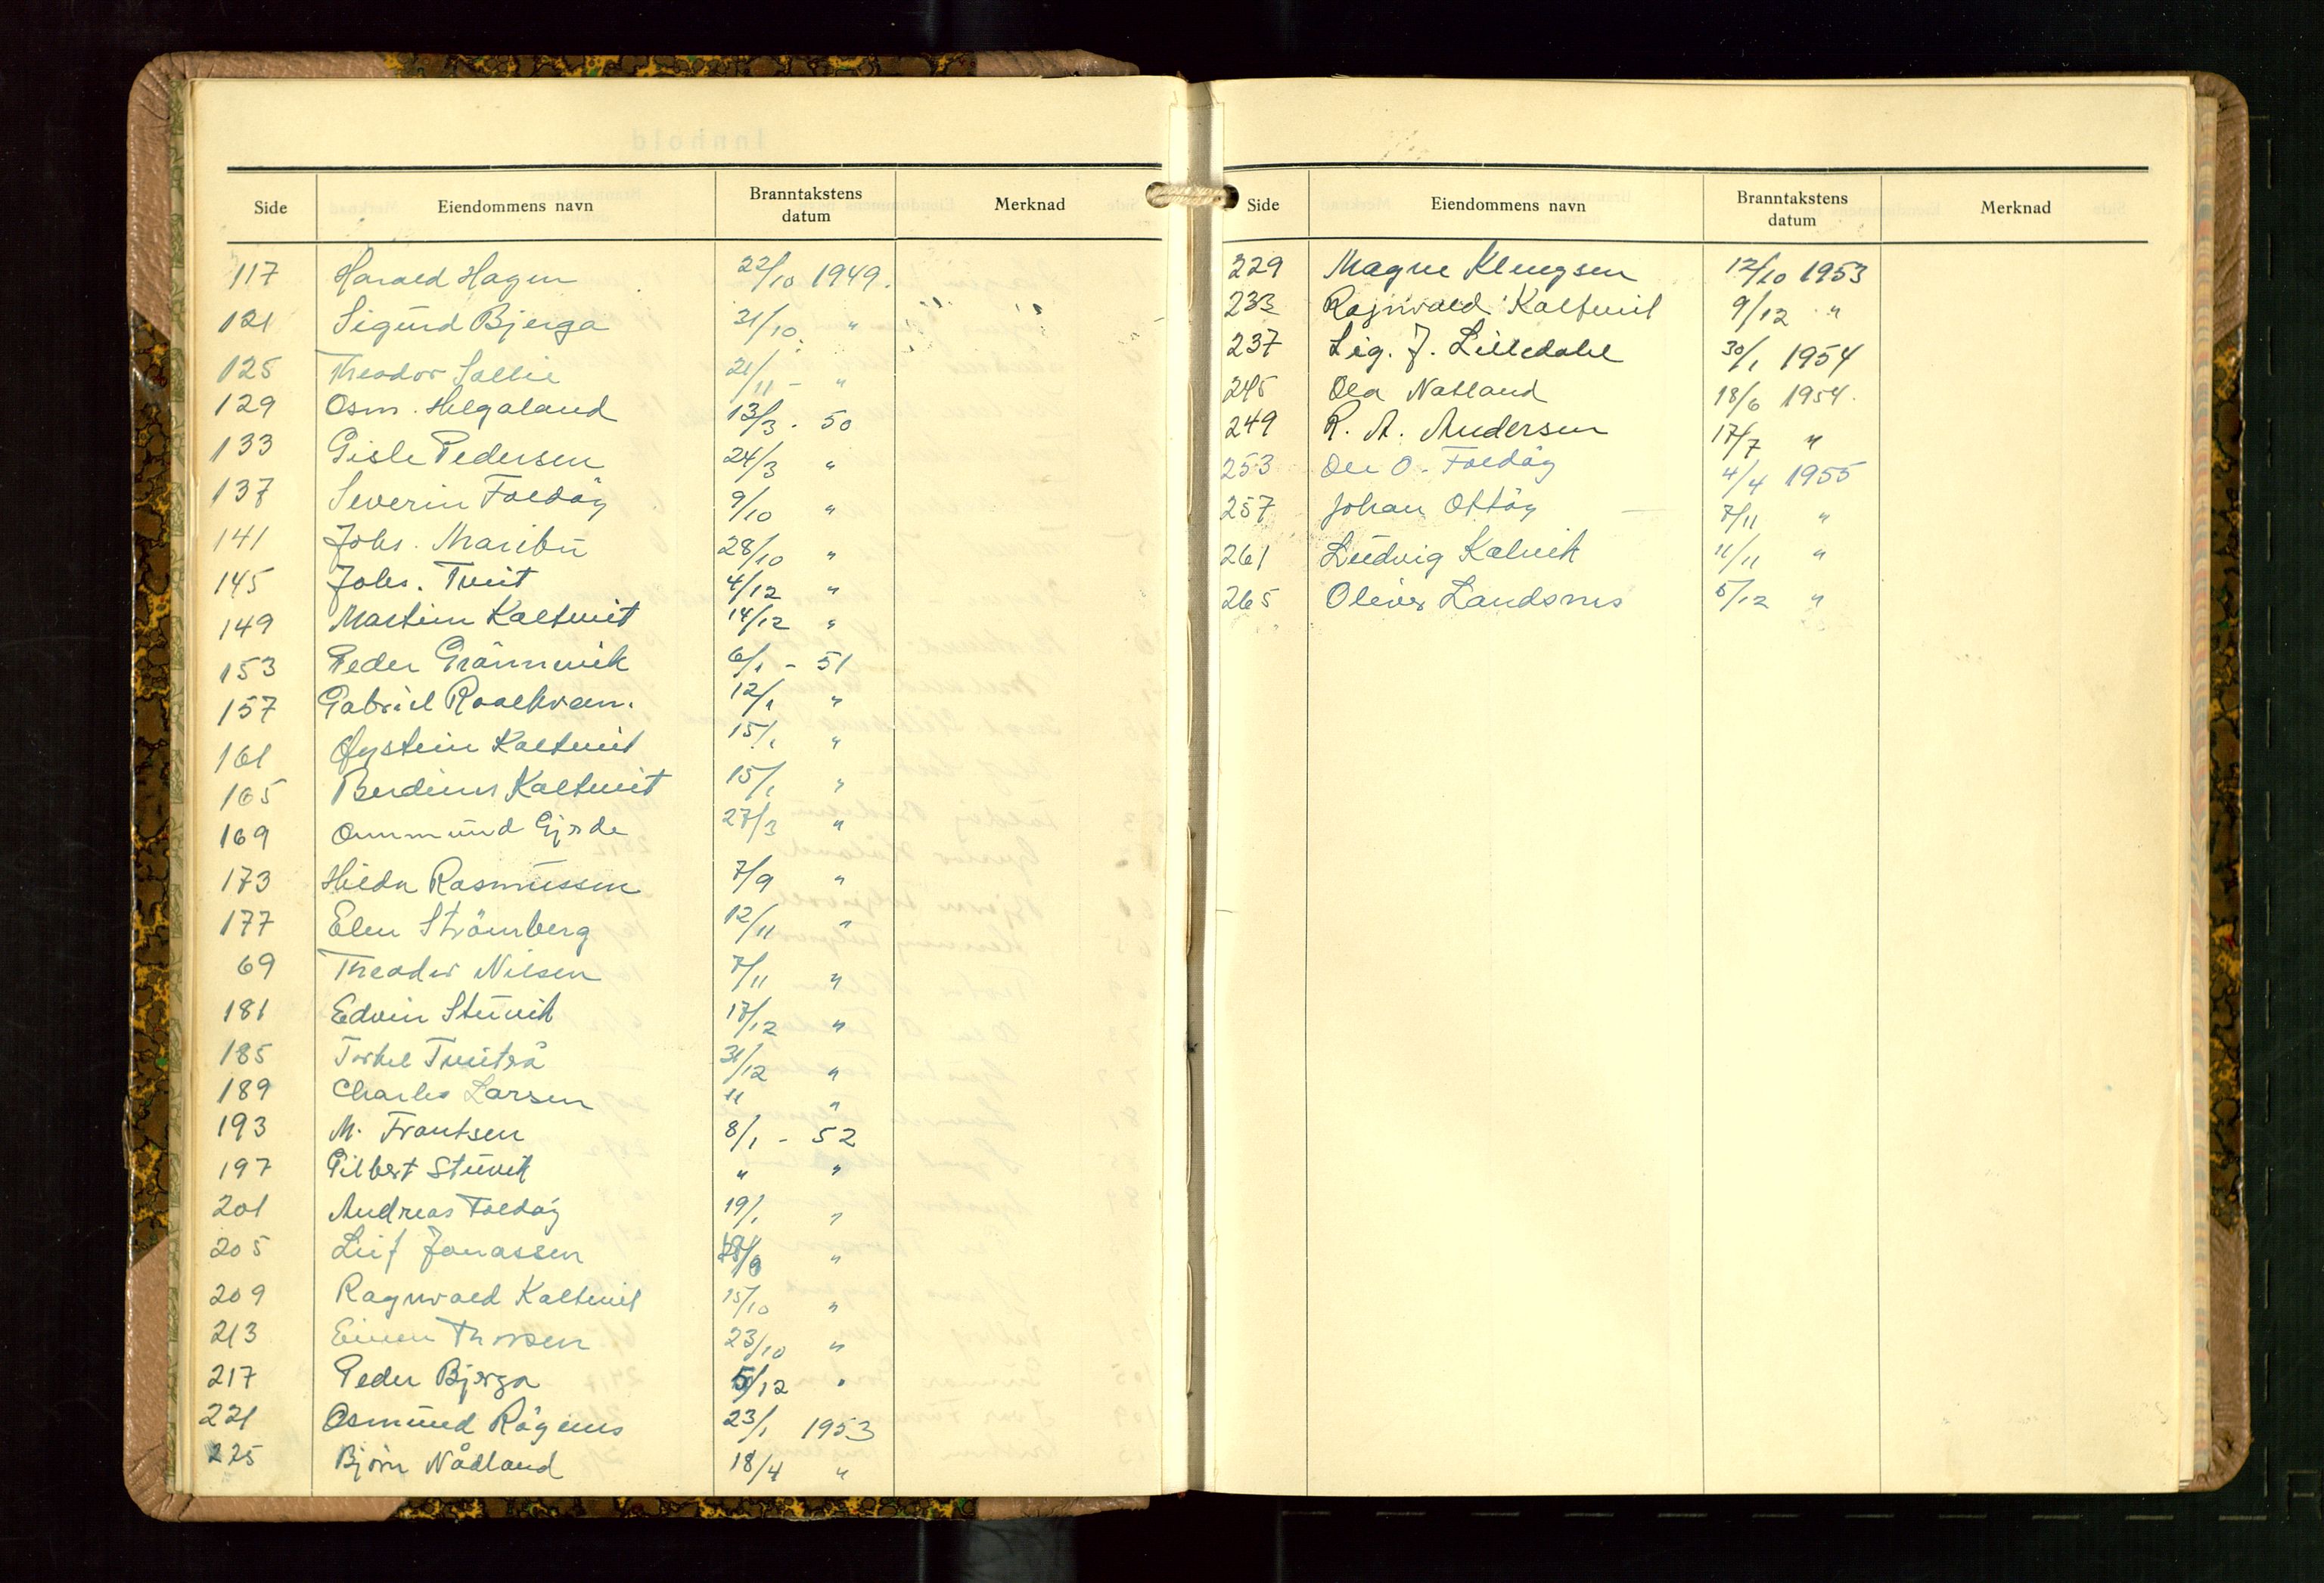 Side Eiendommens navn Branntakstens datum Merknad
117 Harald Hagen 22/10 1949.
121 Sigurd Bjerga 31/10. "
125 Theodor Sallie 21/11 - "
129 Osm. Helgaland 13/3 . 50
133 Gisle Pedersen 24/3 "
137 Severin Foldöy 9/10 "
141 Johs. Maribu 28/10 "
145 Johs. Tveit 4/12 "
149 Martin Kaltveit 14/12 "
153 Peder Grönnvik 6/1 - 51
157 Gabriel Roalkvam. 12/1 "
161 Øystein Kaltveit 15/1 "
165 Berdines Kaltveit 15/1 "
169 Ommund Gjerde 27/3 "
173 Hilda Rasmussen 7/9 "
177 Elen Strömberg 12/11 "
69 Theodor Nilsen 7/11 "
181 Edvin Stuvik 17/12 "
185 Torkel Tveiterå 31/12 "
189 Charles Larsen " "
193 M. Frantsen 8/1 - 52
197 Gilbert Stuvik " "
201 Andreas Foldöy 19/1 "
205 Leif Jonassen "
209 Ragnvald Kaltveit 15/10 "
213 Einar Thorsen 23/10 "
217 Peder Bjerga 5/12 "
221 Osmund Rögenes 23/1 1953
225 Björn Nådland 18/4 "
Side Eiendommens navn Branntakstens datum Merknad
229 Magne Klungsen 12/10 1953
233 Ragnvald Kaltveit 9/12 "
237 Sig. J. Lilledahl 30/1 1954
245 Ola Natland 18/6 1954.
249 R. A. Andersen 17/7 "
253 Ole O. Foldöy 4/4 1955
257 Johan Ottöy 7/11 "
261 Ludvig Kalvik 11/11 "
265 Oliver Landsnes 5/12 "